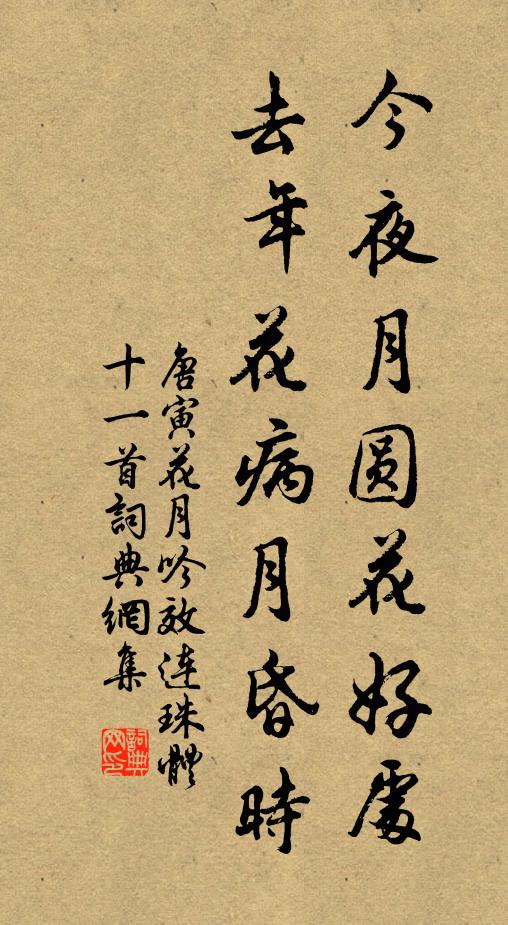 今夜月圓花好處
去年花病月昏時
唐寅花月吟效連珠體
十一首詞典網集
詞典
网印